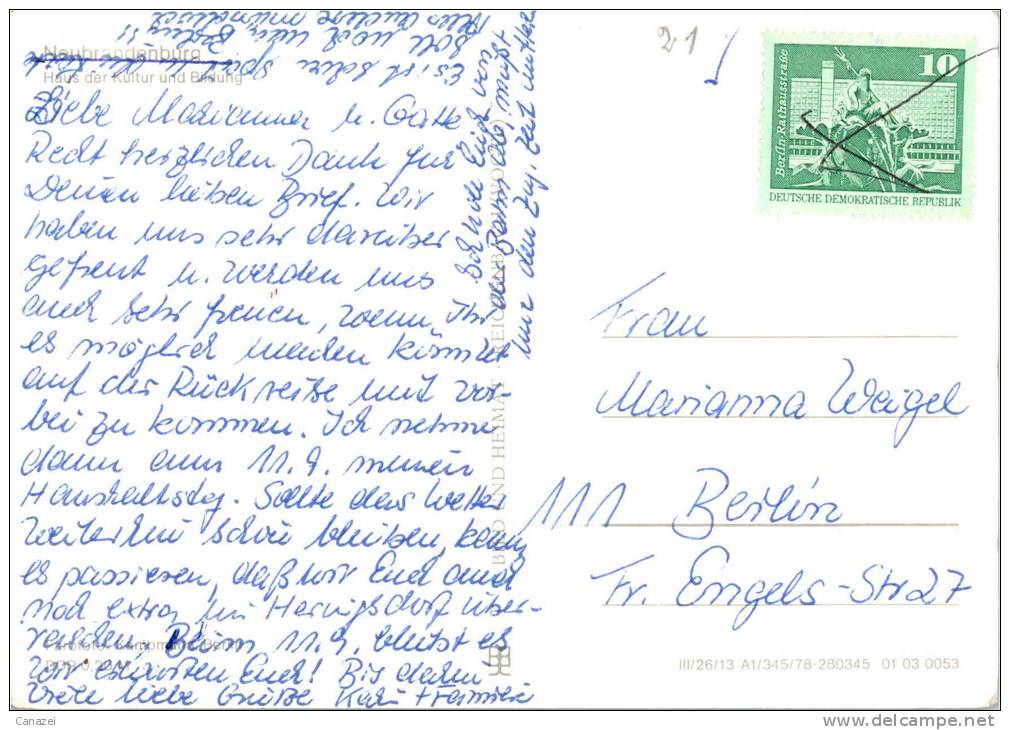 Neubrandenburg
Haus der Kultur und Bildung
Liebe Marianna u.
Recht herzlichen Dank für
Deinen lieben Brief. Wir
haben uns sehr darüber
gefreut u. werden uns
auch sehr freuen, wenn Ihr
es möglich machen könntet
auf der Rückreise mit vor-
bei zu kommen. Ich nehme
dann am 11.9. meinen
Haushaltstag. Sollte das Wetter
weiterhin schön bleiben, kann
es passieren, daß wir Euch auch
noch extra in Heringsdorf über-
raschen. Beim 11.9. bleibt es
wir erwarten Euch! Bis dahin
viele liebe Grüße Karin + Familie
Es ist schon spät
soll noch
Alles andere mündlich
Farbfoto: Kampmann, Berlin
DDR 0,20 M
BILD UND HEIMAT · REICHENBACH (VOGTL)
21
10
Berlin Rathausstraße
DEUTSCHE DEMOKRATISCHE REPUBLIK
Frau
Marianna Weigel
111 Berlin
Fr. Engels-Str 27
III/26/13 A1/345/78-280345 01 03 0053
Canazei
www.delcampe.net